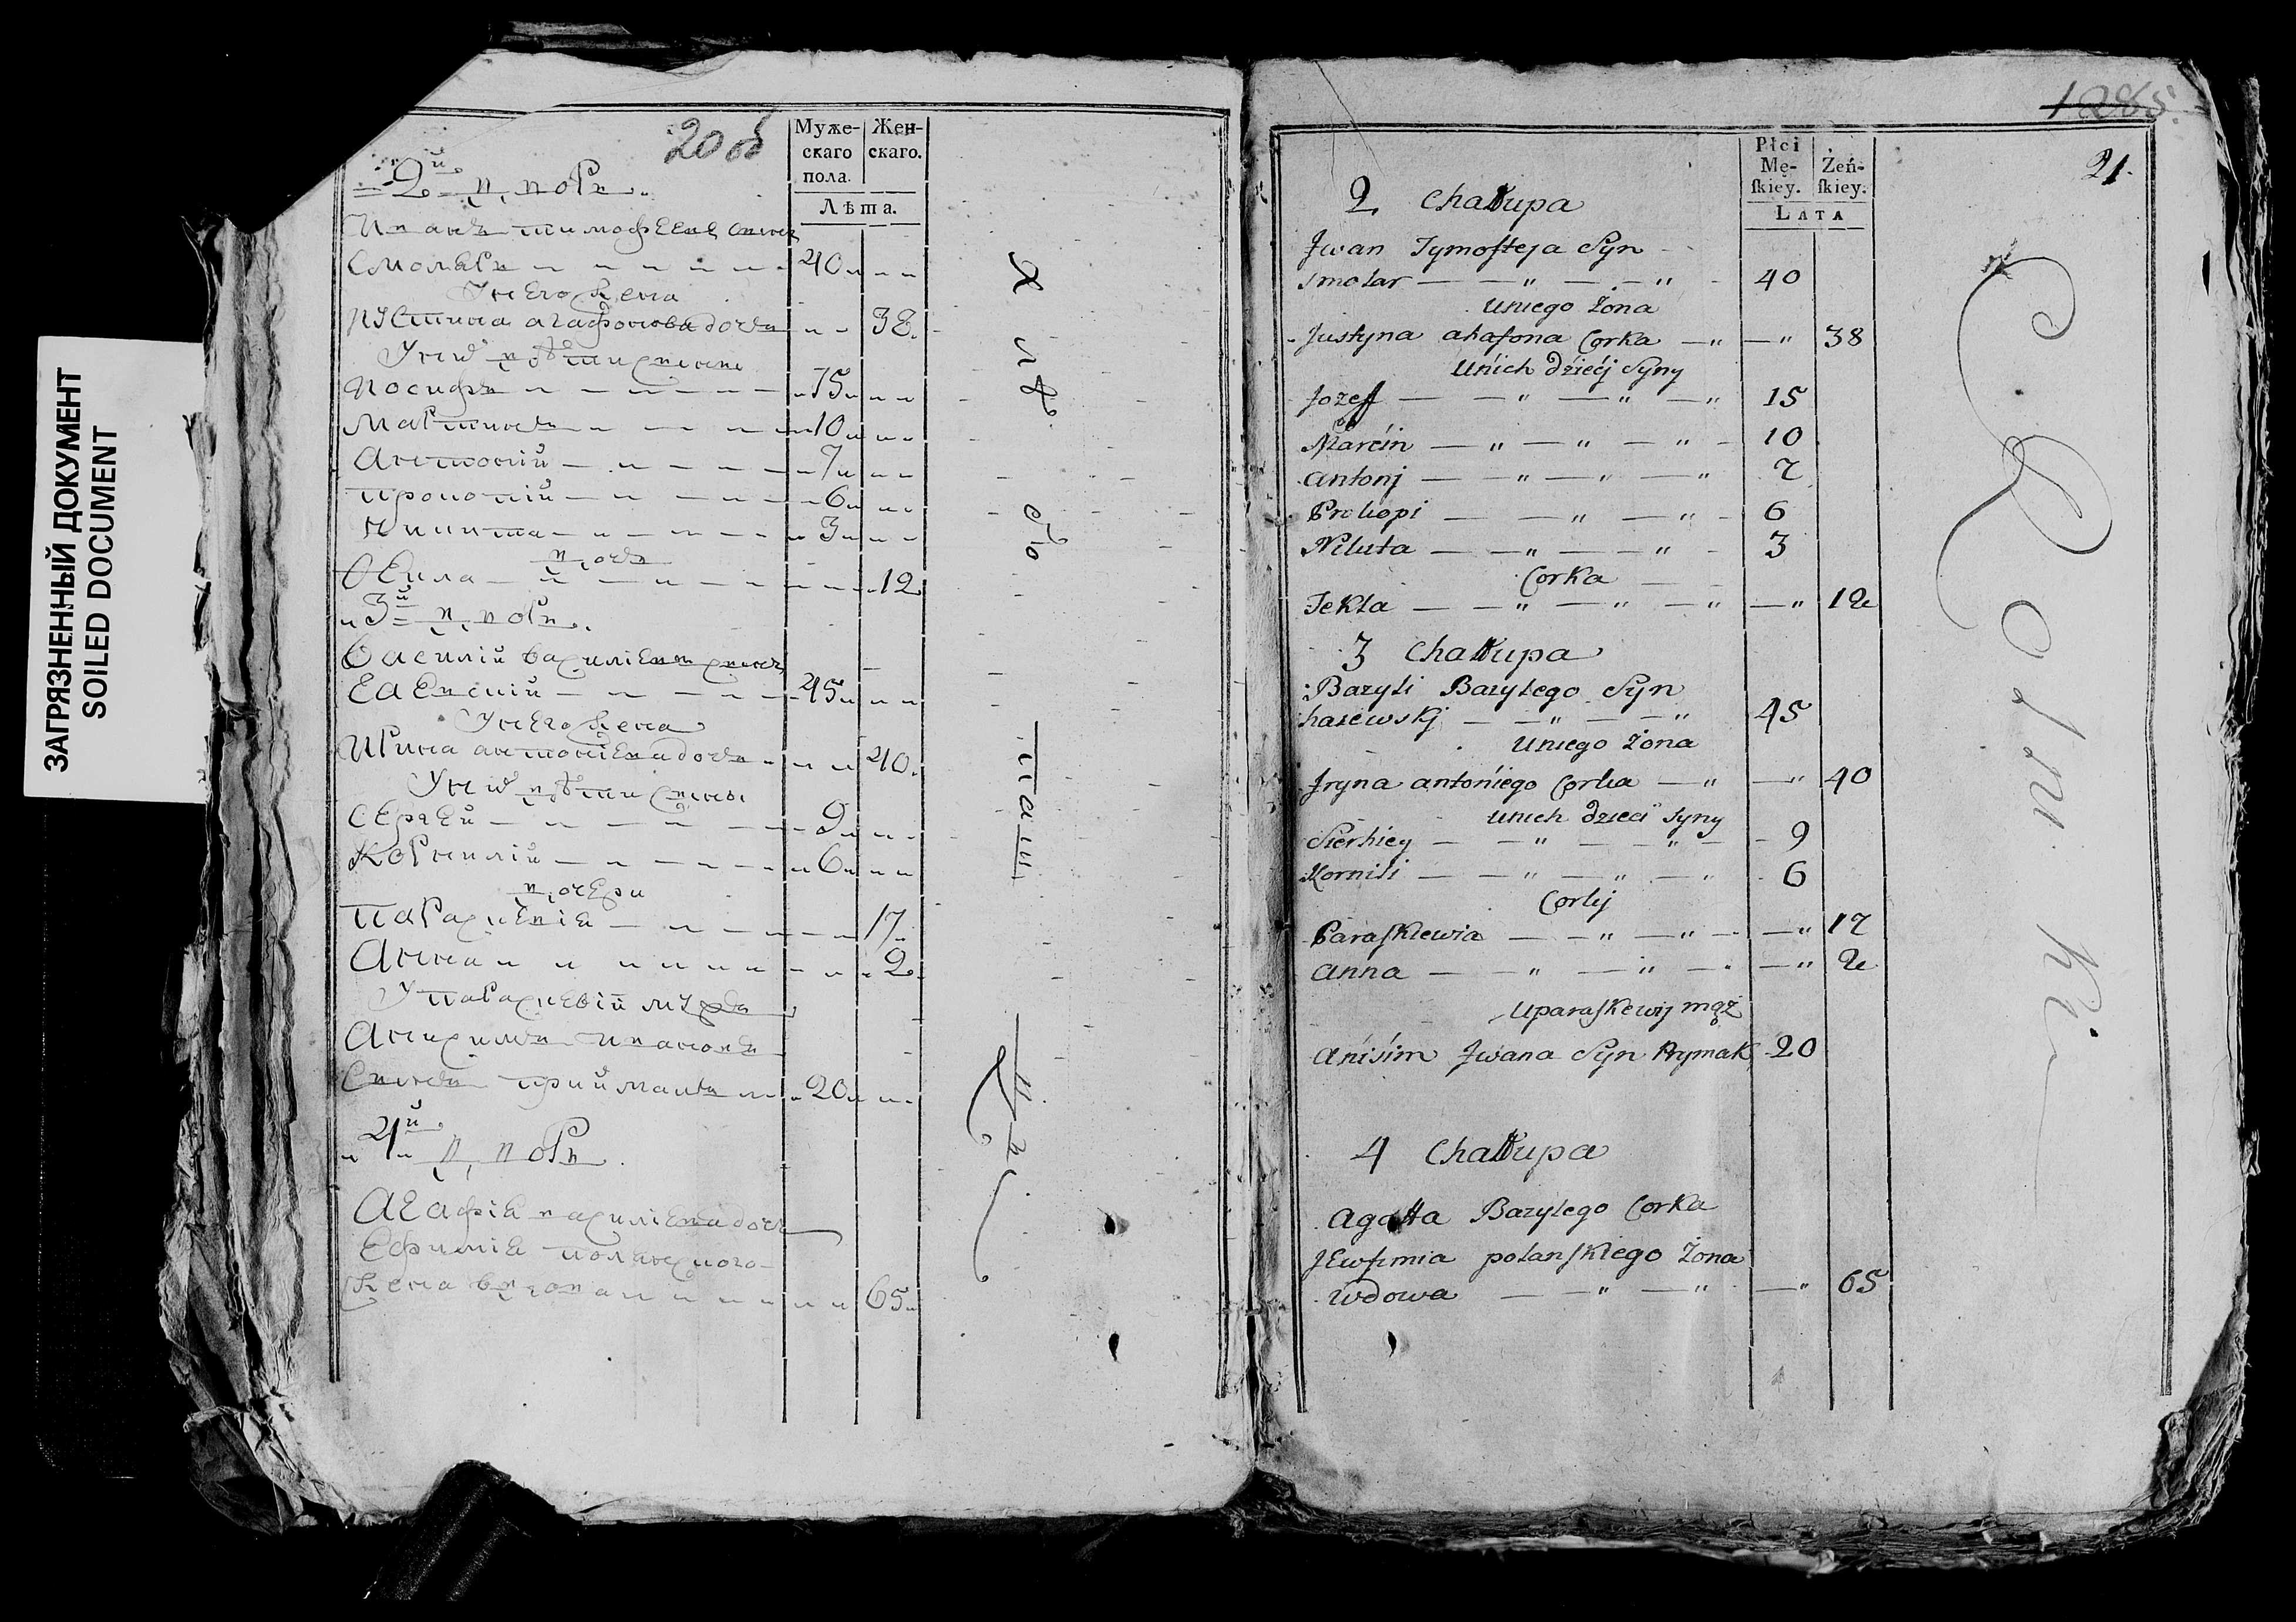 ЗАГРЯЗНЕННЫЙ ДОКУМЕНТ
SOILED DOCUMENT
20 об
Муже-
скаго
пола.
Жен-
скаго.
Лѣта.
2й дворъ
Иванъ тимофеевъ сынъ
смоляръ 40
У него жена
Иустина агафонова дочь 38
У них дѣти сыны
Иосифъ 15
Мартинъ 10
Антоній 7
Прокопій 6
Никита 3
дочь
Фекла 12
3й дворъ
Василій василіевъ сынъ
45
У него жена
Ирина антоніева дочь 40
У них дѣти сыны
Сергей 9
Корнилій 6
дочери
Параскевія 17
Анна 2
У Параскевіи мужъ
Анисимъ ивановъ
сынъ прийманъ 20
4й дворъ
Агафія василіева дочь
Ефимія полянского
жена вдова 65
Хлѣбо паш цы
1286.
21.
Płci
Mę-
ſkiey.
Żeń-
ſkiey.
LATA
2 Chałupa
Jwan Tymofieja Syn
Smolar 40
Uniego Żona
Justyna ahafona Corka 38
Unich dzieci Syny
Jozeff 15
Marcin 10
Antonj 7
Prokopi 6
Nikita 3
Corka
Tekla 12
3 Chałupa
Bazyli Bazylego Syn
hazewskj 45
Uniego Żona
Jryna antoniego Corka 40
Unich dzieci Syny
Sierhiey 9
Kornili 6
Corki
Paraſkiewia 17
Anna 2
Uparaſkewij mąż
Anisim Jwana Syn Prymak 20
4 Chałupa
Agatta Bazylego Corka
JEwfimia polanſkiego Żona
Wdowa 65
Rolniki